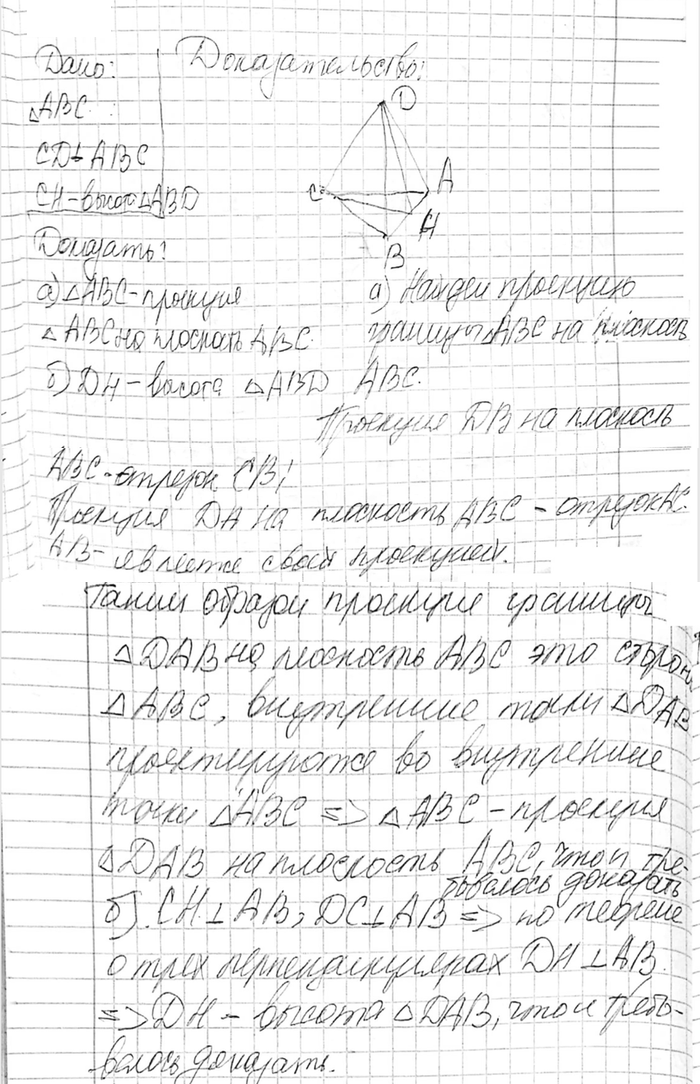 Дано:
Доказательство:
△ABC
CD⊥ABC
CH-высота △ABD
D
C
A
H
B
Доказать:
а) △ABC-проекция
△ABC на плоскать ABC.
б) DH-высота △ABD
а) Найдем проекцию
границы △ABC на плоскость
ABC.
Проекция DB на плоскость
ABC-отрезок CB;
Проекция DA на плоскость ABC - отрезок AC.
AB- является своей проекцией.
Таким образом проекция границы
△DAB на плоскость ABC это сторон,
△ABC, внутренние точки △DAB
проектируются во внутренние
точки △ABC => △ABC-проекция
△DAB на плоскость ABC, что и тре-
бовалось доказать
б) CH⊥AB, DC⊥AB => по теореме
о трех перпендикулярах DH⊥AB.
=> DH- высота △DAB, что и требо-
валось доказать.